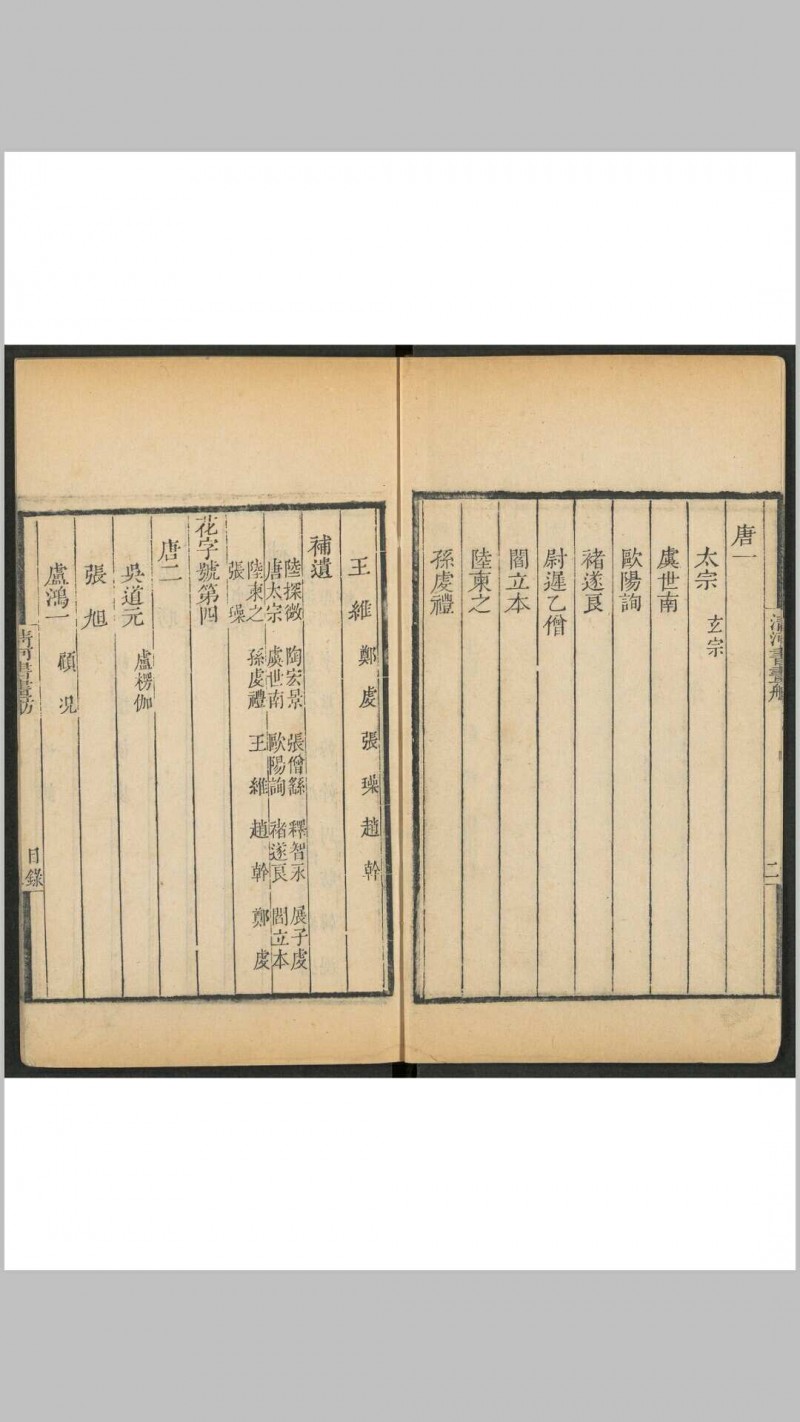 清河書畫舫
二
唐一
太宗 玄宗
虞世南
歐陽詢
褚遂良
尉遲乙僧
閻立本
陸柬之
孫虔禮
王維 鄭虔 張璪 趙幹
補遺
陸探微 陶宏景 張僧繇 釋智永 展子虔
唐太宗 虞世南 歐陽詢 褚遂良 閻立本
陸柬之 孫虔禮 王維 趙幹 鄭虔
張璪
花字號第四
唐二
吳道元 盧楞伽
張旭
盧鴻一 顧况
清河書畫舫
目錄